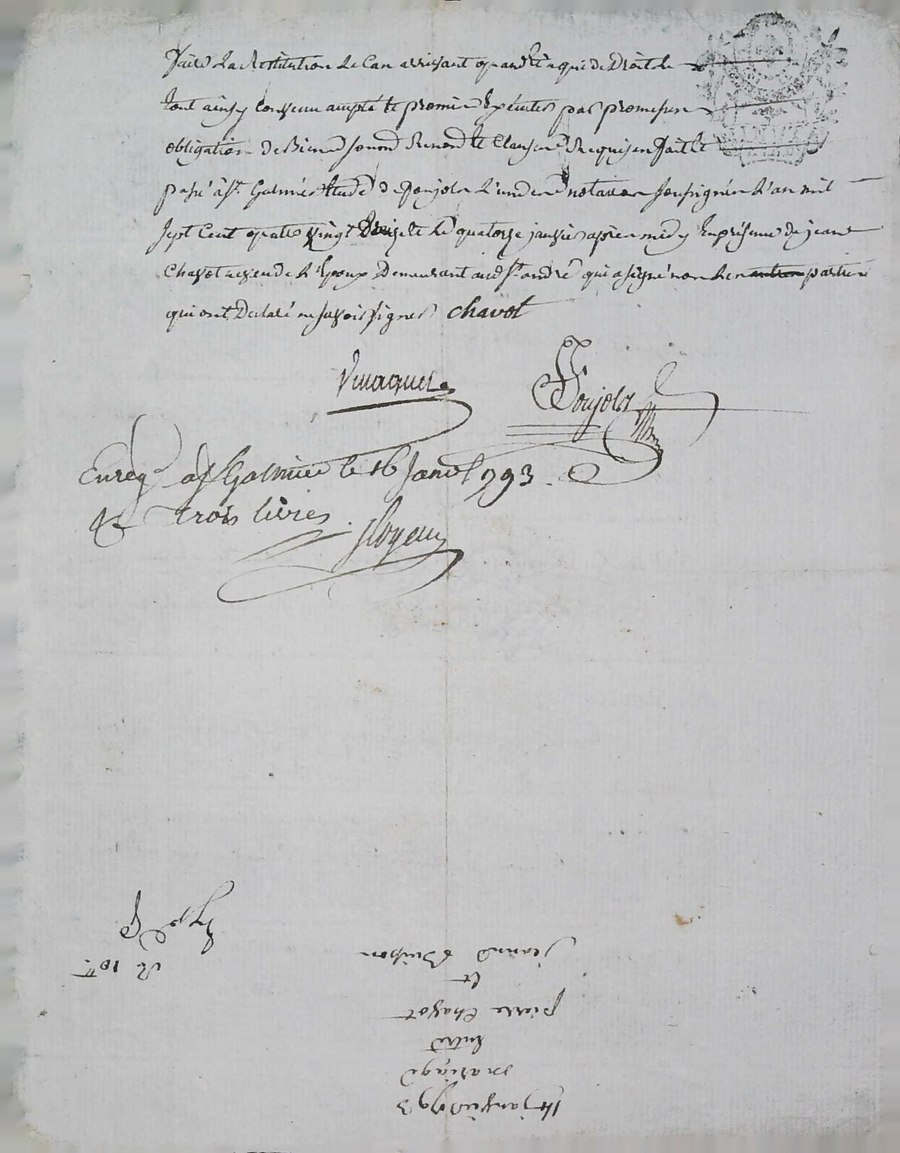 faire la Restitution le Cas arrivant quand Et a qui de Droit le
tout ainsy Convenu accepté et promis Exécuter par promesses
obligation de Biens soumis Renond et Clauses Requises fait et
passé à St Galmier Etude de poujols L'un des notaires soussignés L'an mil
sept Cent quatre vingt treize et le quatorze janvier après midy En présence de jean
Chavot neveu de L'Epoux Demeurant aud St andré qui a signé non les parties
qui ont Déclaré ne savoir signer chavot
Poujols
Enregé a St Galmier le 16 Janv 1793.
trois livres.
14 janvier 1793
mariage
Entre
pierre Chavot
Et
jeanne Buisson